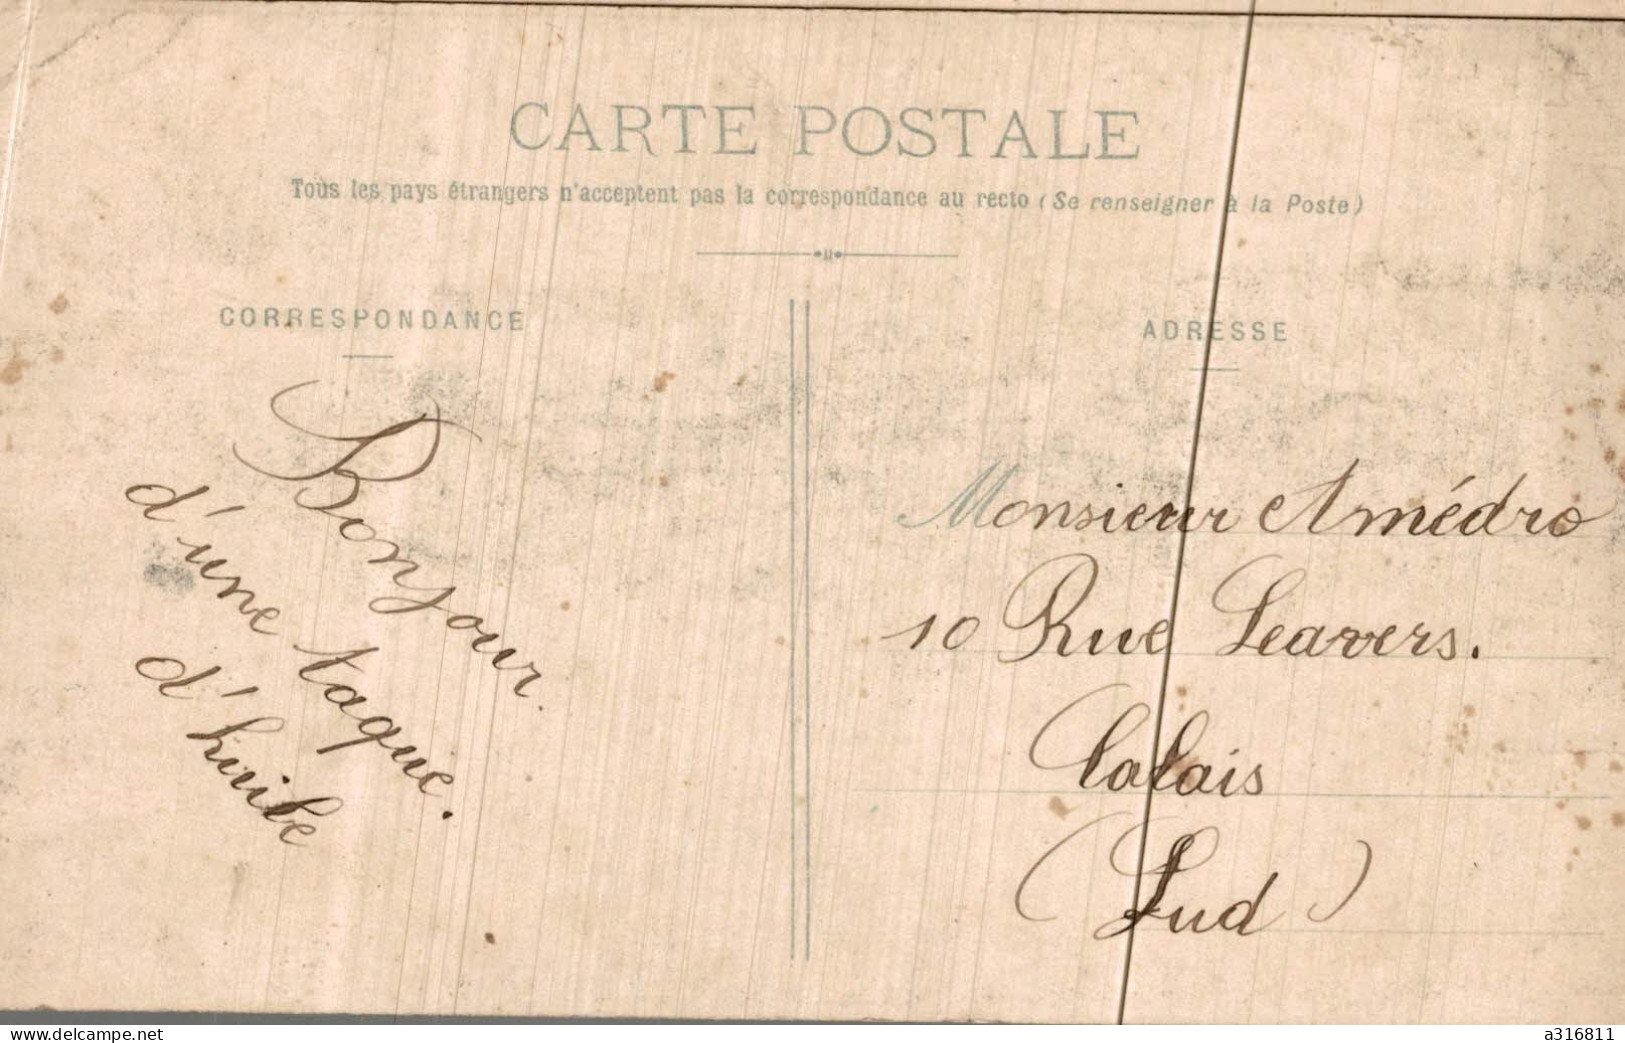 CARTE POSTALE
Tous les pays étrangers n'acceptent pas la correspondance au recto (Se renseigner à la Poste)
CORRESPONDANCE
Bonjour
d'une taque.
d'huile
ADRESSE
Monsieur Amédro
10 Rue Leavers.
Calais
(Sud)
www.delcampe.net
a316811